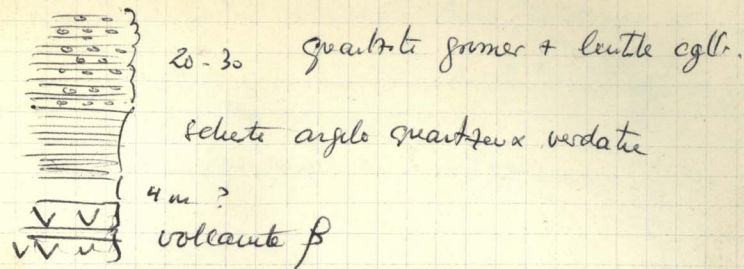 20-30 quartzite grossier + lentille cgltr.
schiste argilo quartzeux verdatre
4 m ?
volcanite β